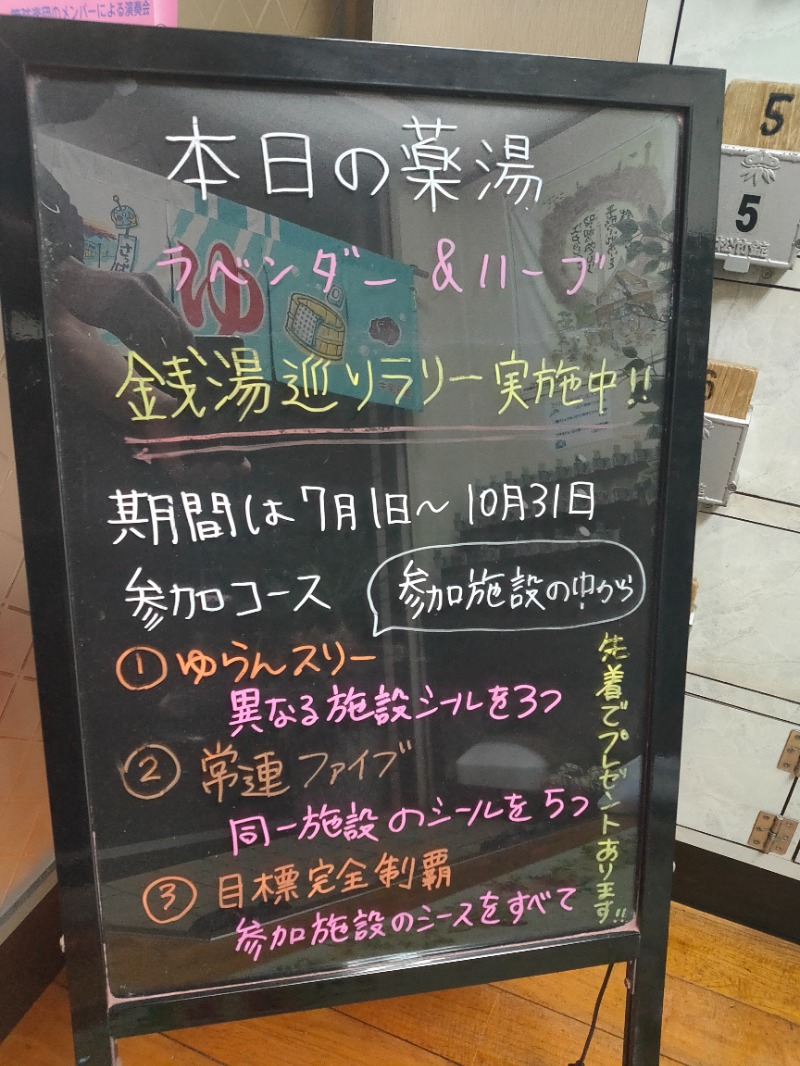 管弦楽団のメンバーによる演奏会
本日の薬湯
ラベンダー&ハーブ
ゆ
銭湯巡りラリー実施中!!
期間は7月1日～10月31日
参加コース
参加施設の中から
①ゆらんスリー
異なる施設シールを3つ
②常連ファイブ
同一施設のシールを5つ
③目標完全制覇
参加施設のシースをすべて
先着でプレゼントあります!!
5
5
6